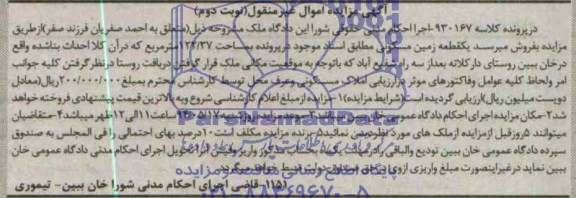 آگهی مزایده اموال غیرمنقول(نوبت دوم)
درپرونده کلاسه ۹۳۰۱۶۷-اجرا احکام مدنی حقوقی شورا این دادگاه ملک مشروحه ذیل(متعلق به احمد صفریان فرزند صفر)ازطریق
مزایده بفروش میرسد یکقطعه زمین مسکونی مطابق اسناد موجود درپرونده بمساحت ۱۲۴/۳۷مترمربع که در آن کلا احداث بناشده واقع
درخان ببین روستای دارکلاته بعداز سه راه شفیع آباد که باتوجه به موقعیت مکانی ملک قرار گرفتن دربافت روستا و درنظر گرفتن کلیه جوانب
امر ولحاظ کلیه عوامل وفاکتورهای موثر درارزیابی املاک مسکونی وعرف محل توسط کارشناس محترم بمبلغ۲۰۰/۰۰۰/۰۰۰ریال(معادل
دویست میلیون ریال)ارزیابی گردیده است(شرایط مزایده)۱-مزایده ازمبلغ اعلام کارشناسی شروع وبه بالاترین قیمت پیشنهادی فروخته خواهد
شد۲-مکان مزایده اجرای احکام دادگاه عمومی ساعت ۱۱الی۱۲ظهر میباشد۴-متقاضیان
میتوانند ۵روزقبل ازمزایده ازملک های مورد نظر دیدن نمایند۵-برنده مزایده مکلف است۱۰درصد بهای احتمالی را فی المجلس به صندوق
سپرده دادگاه عمومی خان ببین تودیع والباقی را روز واریز وفیش آنرا تحویل اجرای احکام مدنی دادگاه عمومی خان
ببین نماید درغیراینصورت مبلغ واریزی ازوی
۱۱۵۱-قاضی اجرای احکام مدنی شورا خان ببین- تیموری
پایگاه اطلاع رسانی مناقصه و مزایده
۰۲۱-۸۸۳۴۹۶۷۰-۵